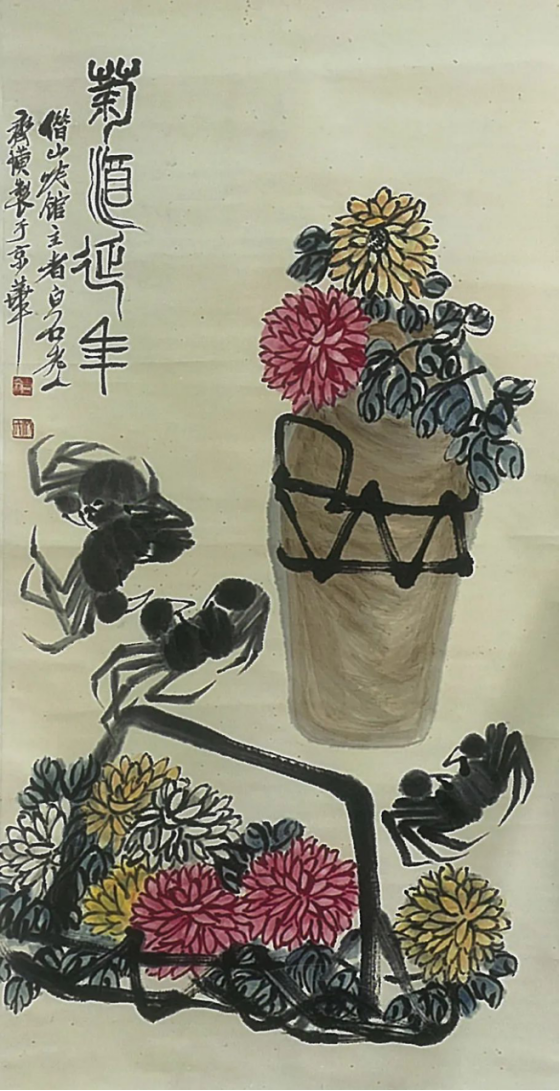 菊酒延年
借山吟馆主者白石老人
齐璜製于京華